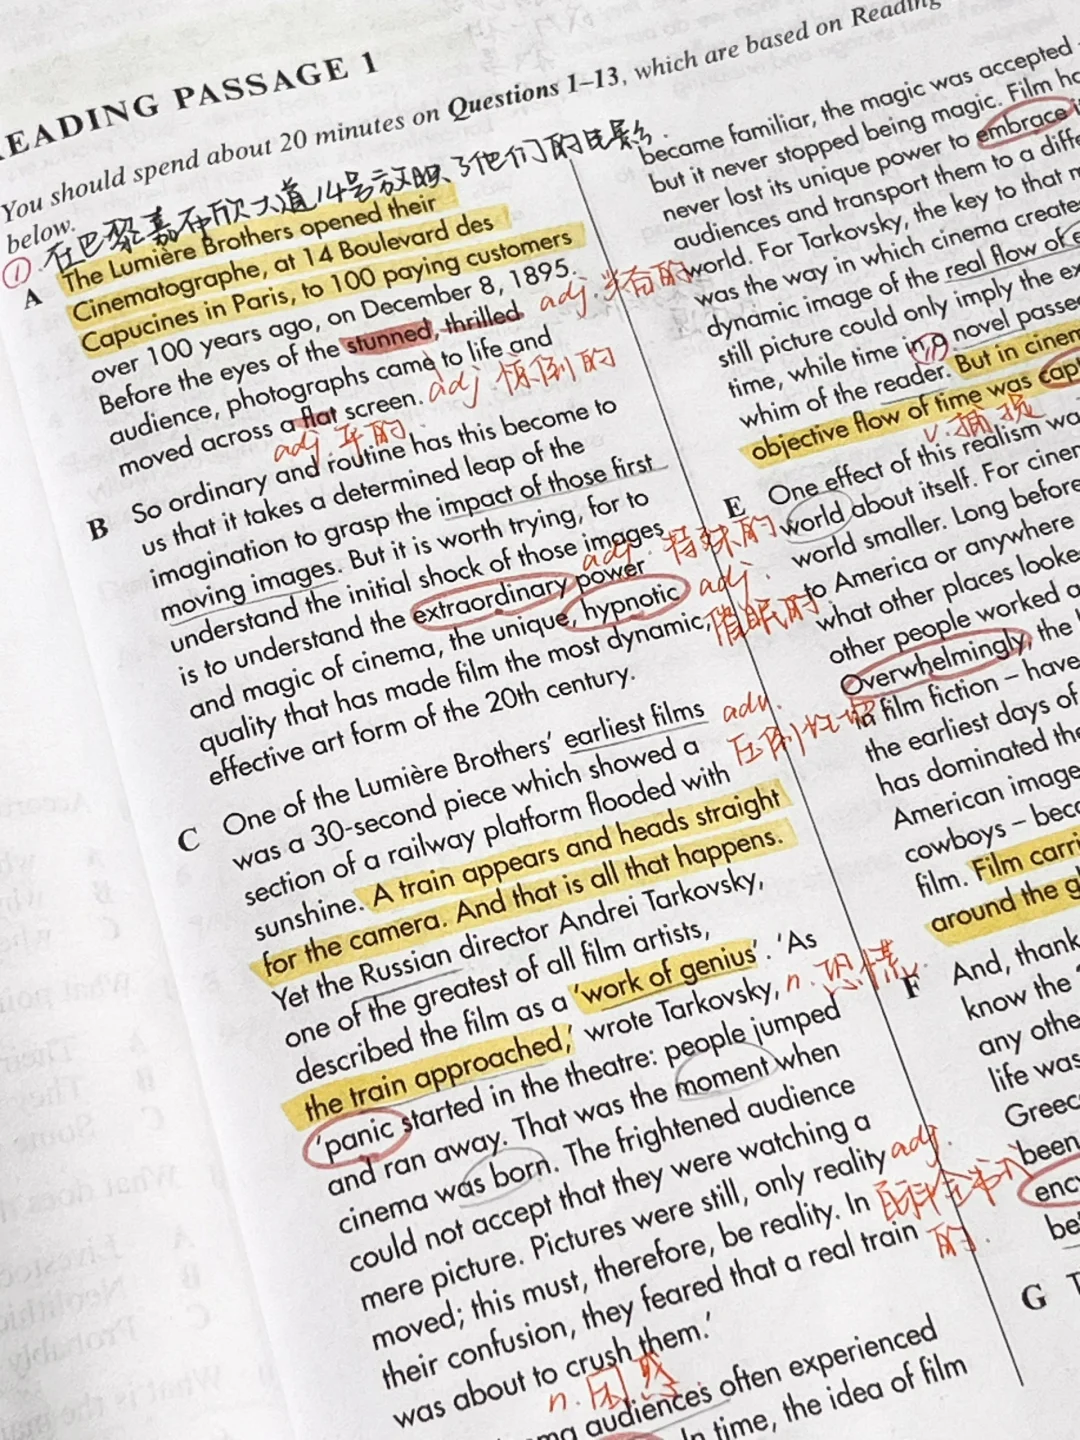 READING PASSAGE 1
You should spend about 20 minutes on Questions 1–13, which are based on Reading
below.
在巴黎嘉布欣大道14号放映了他们的电影.
①
A
The Lumière Brothers opened their
Cinematographe, at 14 Boulevard des
Capucines in Paris, to 100 paying customers
over 100 years ago, on December 8, 1895.
Before the eyes of the stunned, thrilled
adj.
audience, photographs came to life and
adj. 惊倒的
moved across a flat screen.
adj. 平的
B
So ordinary and routine has this become to
us that it takes a determined leap of the
imagination to grasp the impact of those first
moving images. But it is worth trying, for to
understand the initial shock of those images
adj. 特殊的
is to understand the extraordinary power
and magic of cinema, the unique, hypnotic
adj. 催眠的
quality that has made film the most dynamic,
effective art form of the 20th century.
C
One of the Lumière Brothers' earliest films
was a 30-second piece which showed a
section of a railway platform flooded with
sunshine. A train appears and heads straight
for the camera. And that is all that happens.
Yet the Russian director Andrei Tarkovsky,
one of the greatest of all film artists,
described the film as a 'work of genius'. 'As
the train approached,' wrote Tarkovsky,
n. 恐慌
'panic started in the theatre: people jumped
and ran away. That was the moment when
cinema was born. The frightened audience
could not accept that they were watching a
mere picture. Pictures were still, only reality
moved; this must, therefore, be reality. In
their confusion, they feared that a real train
was about to crush them.'
n. 困惑
audiences often experienced
In time, the idea of film
became familiar, the magic was accepted
but it never stopped being magic. Film
never lost its unique power to embrace
audiences and transport them to a
world. For Tarkovsky, the key to that
was the way in which cinema
dynamic image of the real flow of
still picture could only imply the
time, while time in a novel
whim of the reader. But in
objective flow of time was
v. 捕捉
E
One effect of this realism
world about itself. For
world smaller. Long before
to America or anywhere
what other places
other people worked
Overwhelmingly, the
adv.
film fiction – have
the earliest days of
has dominated
American
cowboys –
film. Film
around the
F
And,
know the
any
life was
Greece
been
adj.
G